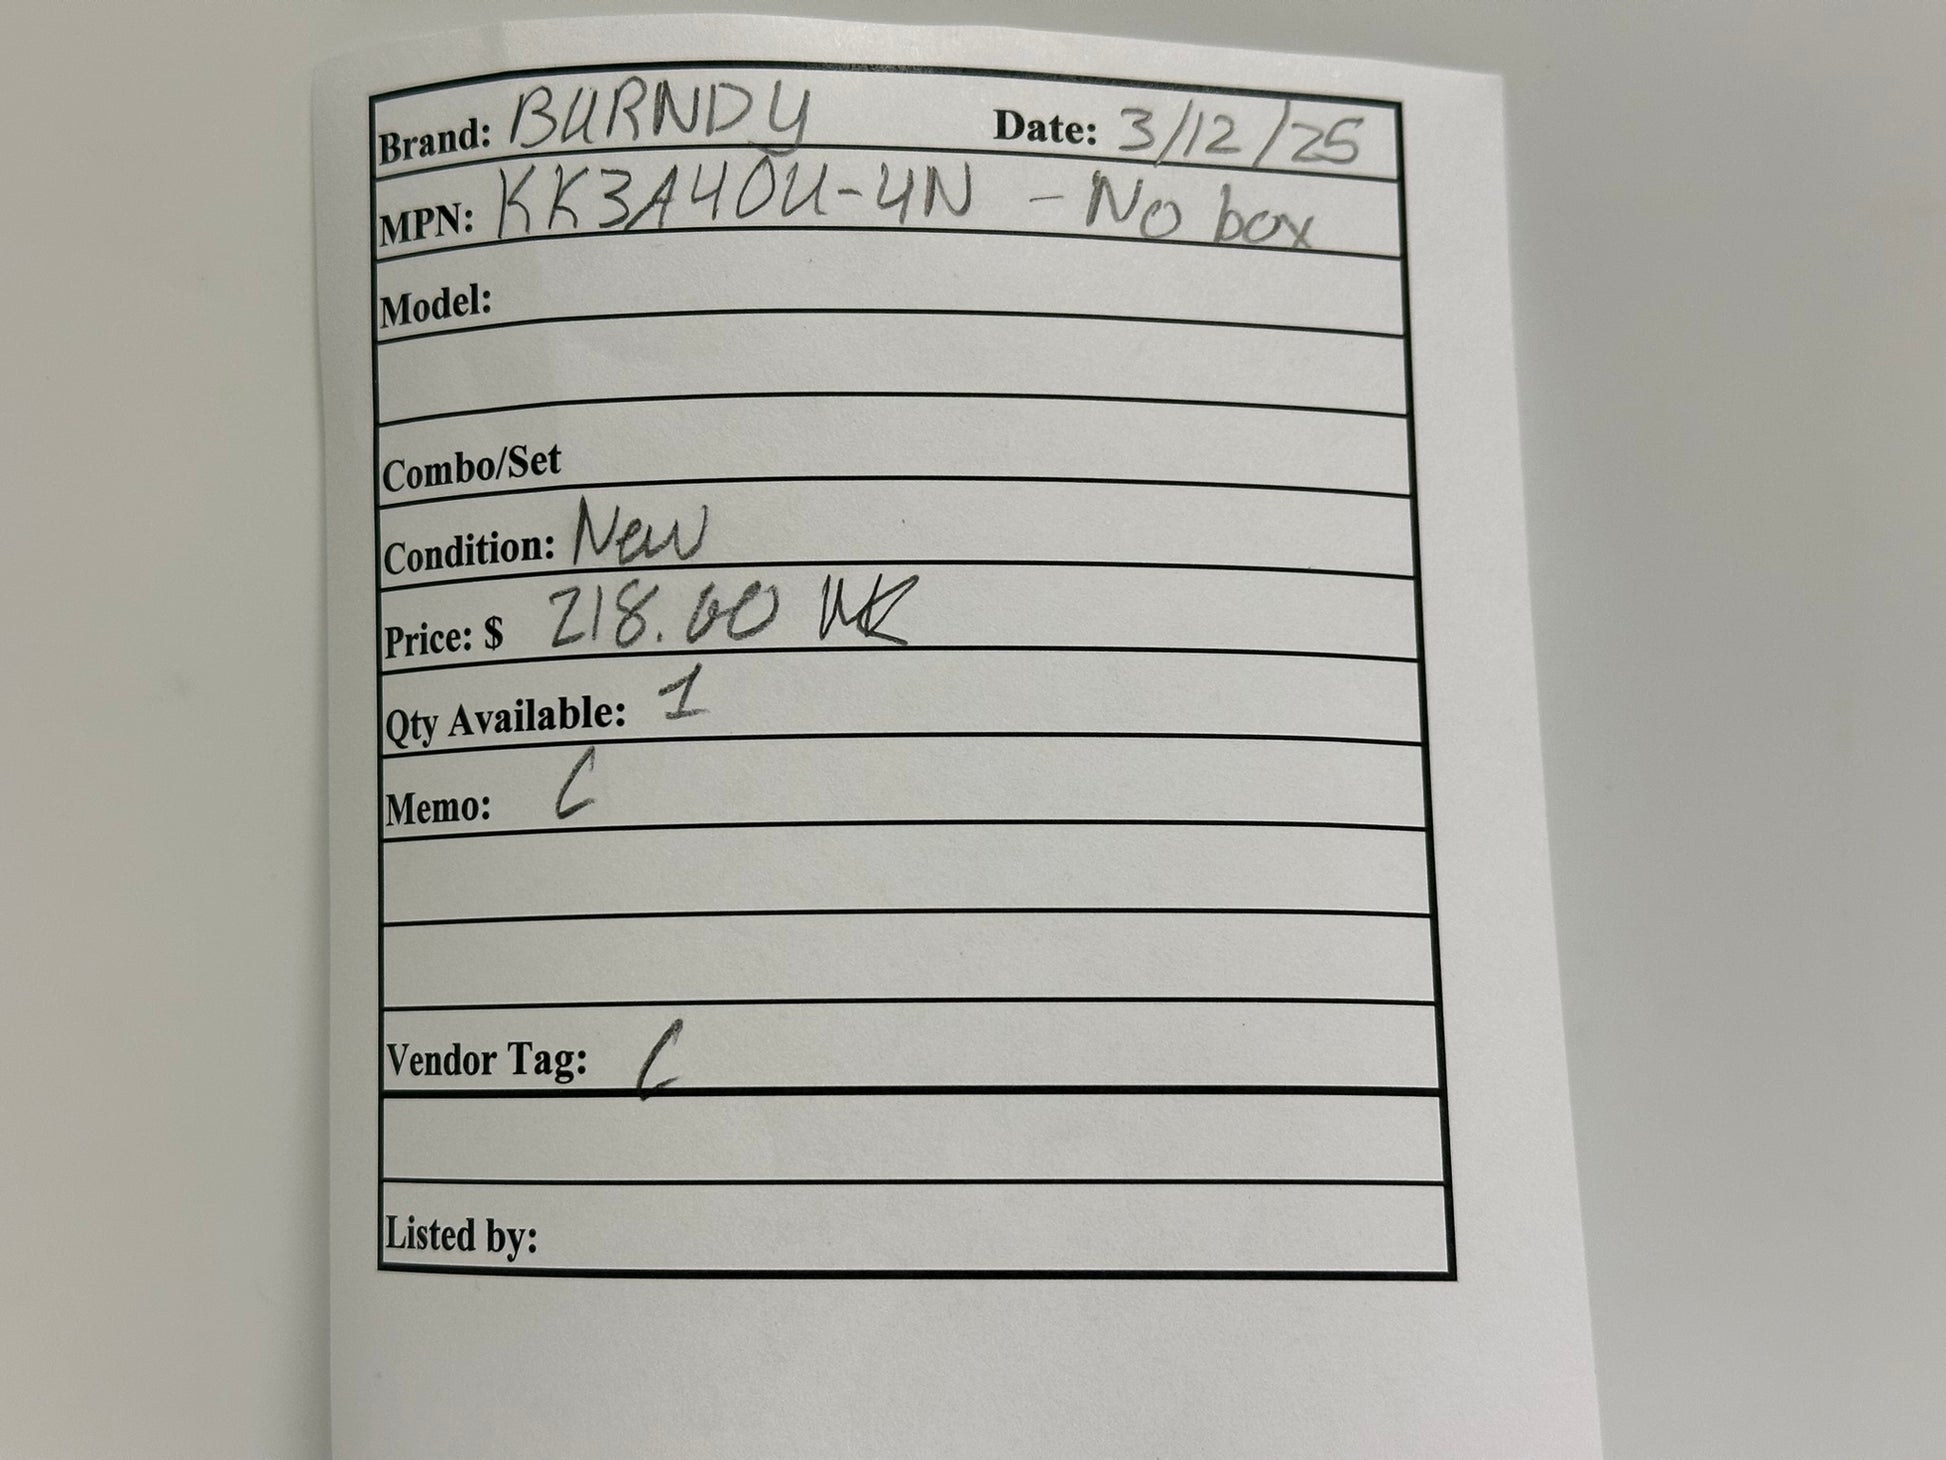 Brand: BURNDY Date: 3/12/25
MPN: KK3A40U-4N - No box
Model:
Combo/Set
Condition: New
Price: $ 218.00
Qty Available: 1
Memo: C
Vendor Tag: C
Listed by: